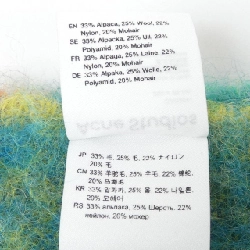 EN 33% Alpaca, 25% Wool, 22%
Nylon, 20% Mohair
SE 33% Alpacka, 25% Ull, 22%
Polyamid, 20% Mohair
FR 33% Alpaga, 25% Laine, 22%
Nylon, 20% Mohair
DE 33% Alpaka, 25% Wolle, 22%
Polyamid, 20% Mohair
Acne Studios
JP 33% 毛, 25% 毛, 22% ナイロン
20% 毛
CN 33% 羊驼毛, 25% 羊毛, 22% 锦纶,
20% 马海毛
KR 33% 알파카, 25% 울, 22% 나일론,
20% 모헤어
РУ 33% альпака, 25% Шерсть, 22%
нейлон, 20% мохер